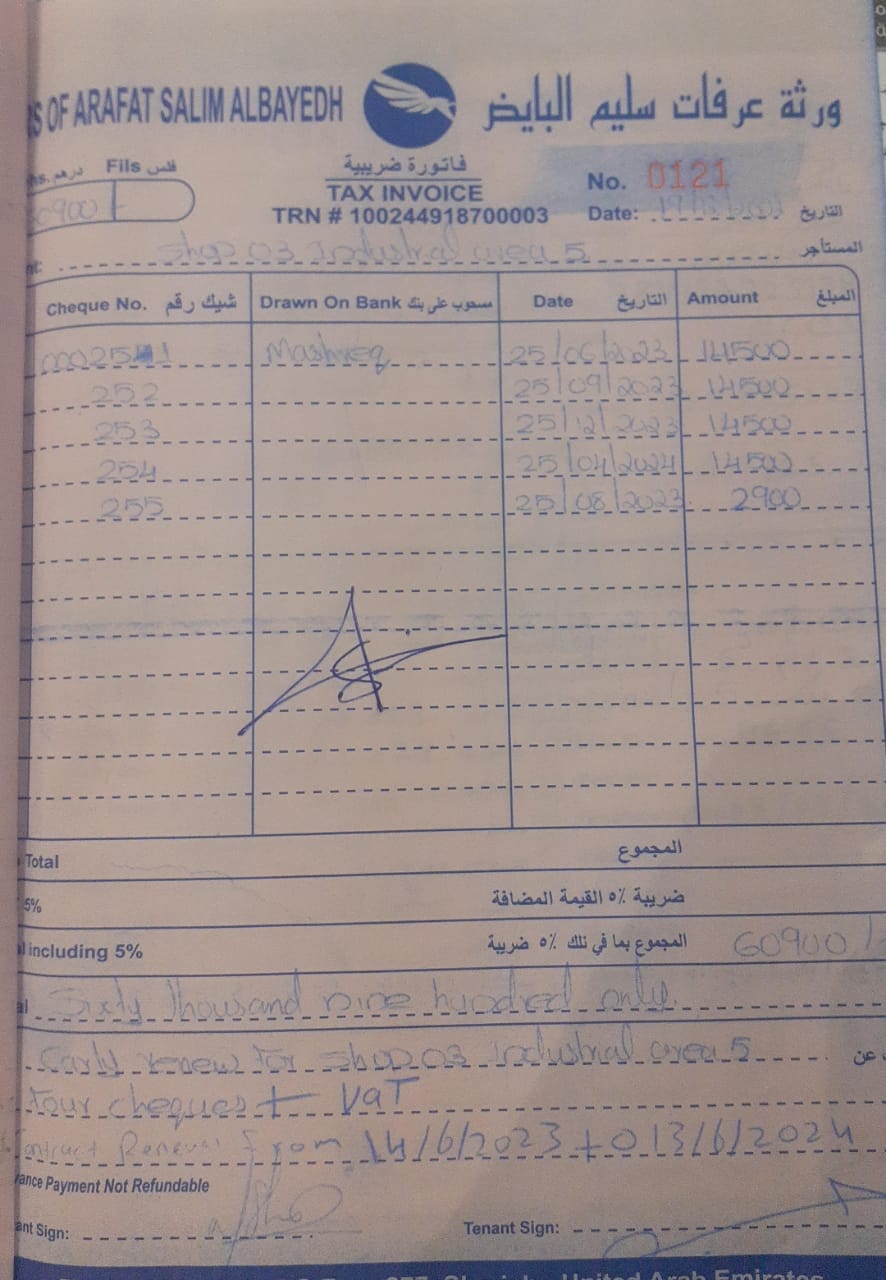 S OF ARAFAT SALIM ALBAYEDH ورثة عرفات سليم البايض
hs. درهم Fils فلس فاتورة ضريبية
60900/- TAX INVOICE No. 0121
TRN # 100244918700003 Date: التاريخ
nt: shop 03 Industrial area 5 المستأجر
Cheque No. شيك رقم Drawn On Bank مسحوب على بنك Date التاريخ Amount المبلغ
Mashreq 25/06/2023 14500
252 25/09/2023 14500
253 25/12/2023 14500
254 25/04/2024 14500
255 25/08/2023 2900
Total المجموع
5% ضريبة ٥٪ القيمة المضافة
l including 5% المجموع بما في ذلك ٥٪ ضريبة 60900/-
al Sixty Thousand nine hundred only.
Early renew for shop 03 Industrial area 5 عن
four cheques + VaT
Contract Renewal From 14/6/2023 to 13/6/2024
ance Payment Not Refundable
ant Sign: Tenant Sign:
United Arab Emirates